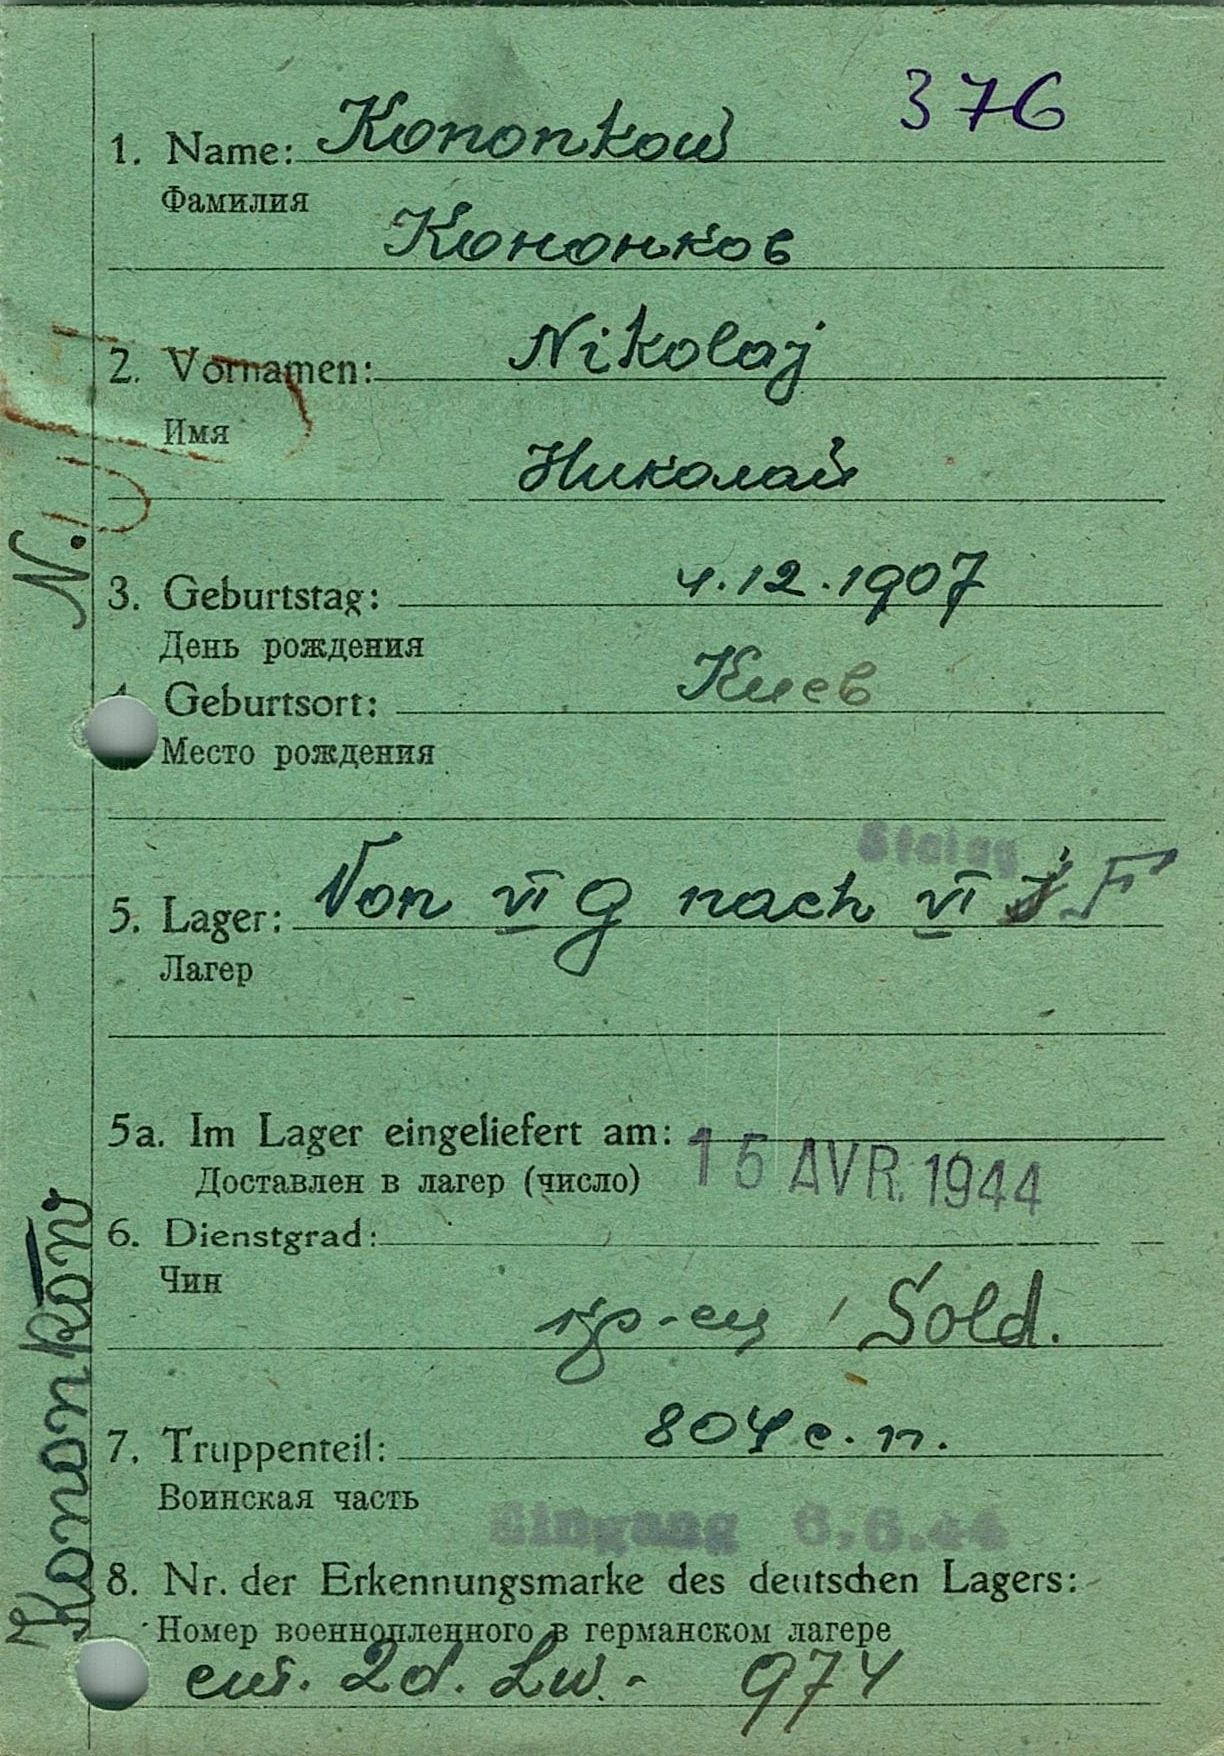 376
1. Name: Kononkow
Фамилия
Кононков
2. Vornamen: Nikolaj
Имя
Николай
N.
3. Geburtstag: 4.12.1907
День рождения
Киев
Geburtsort:
Место рождения
Stalag
5. Lager: Von VI G nach VI F
Лагер
5a. Im Lager eingeliefert am: 15 AVR. 1944
Доставлен в лагер (число)
6. Dienstgrad:
Чин
кр-ец / Sold.
7. Truppenteil: 804 с. п.
Воинская часть
Eingang 6.6.44
8. Nr. der Erkennungsmarke des deutschen Lagers:
Номер военнопленного в германском лагере
2d. Lw. - 974
Kononkow